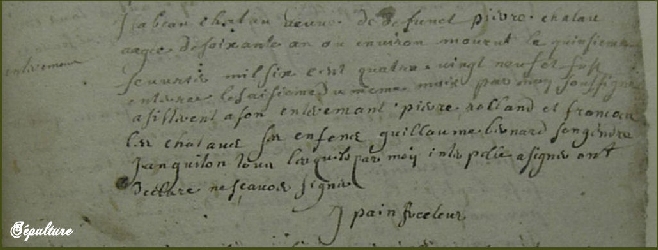 Isabeau chatau veuve de defunct pierre chatau
aagee de soixante an ou environ mourut le quinsieme
enterement
feuvrier mil six cent quatre vingt neuf et fust
enterree le saisieme du meme mois par moy soussigne
assisterent a son enterement pierre rolland et francou
les chataus ses enfens guillaume lienard son gendre
Jean quilon tous lesquels par moy interpelle a signer ont
declare ne scavoir signer
J pain recteur
Sépulture